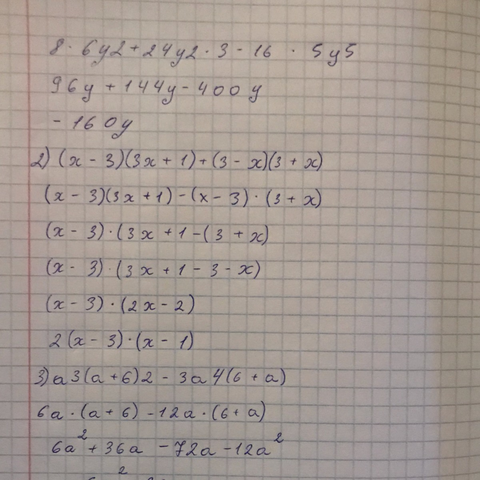 8 · 6y2 + 24y2 · 3 - 16 · 5y5
96y + 144y - 400y
- 160y
2) (x - 3)(3x + 1) + (3 - x)(3 + x)
(x - 3)(3x + 1) - (x - 3) · (3 + x)
(x - 3) · (3x + 1 - (3 + x)
(x - 3) · (3x + 1 - 3 - x)
(x - 3) · (2x - 2)
2(x - 3) · (x - 1)
3) a3(a + 6)2 - 3a4(6 + a)
6a · (a + 6) - 12a · (6 + a)
6a² + 36a - 72a - 12a²